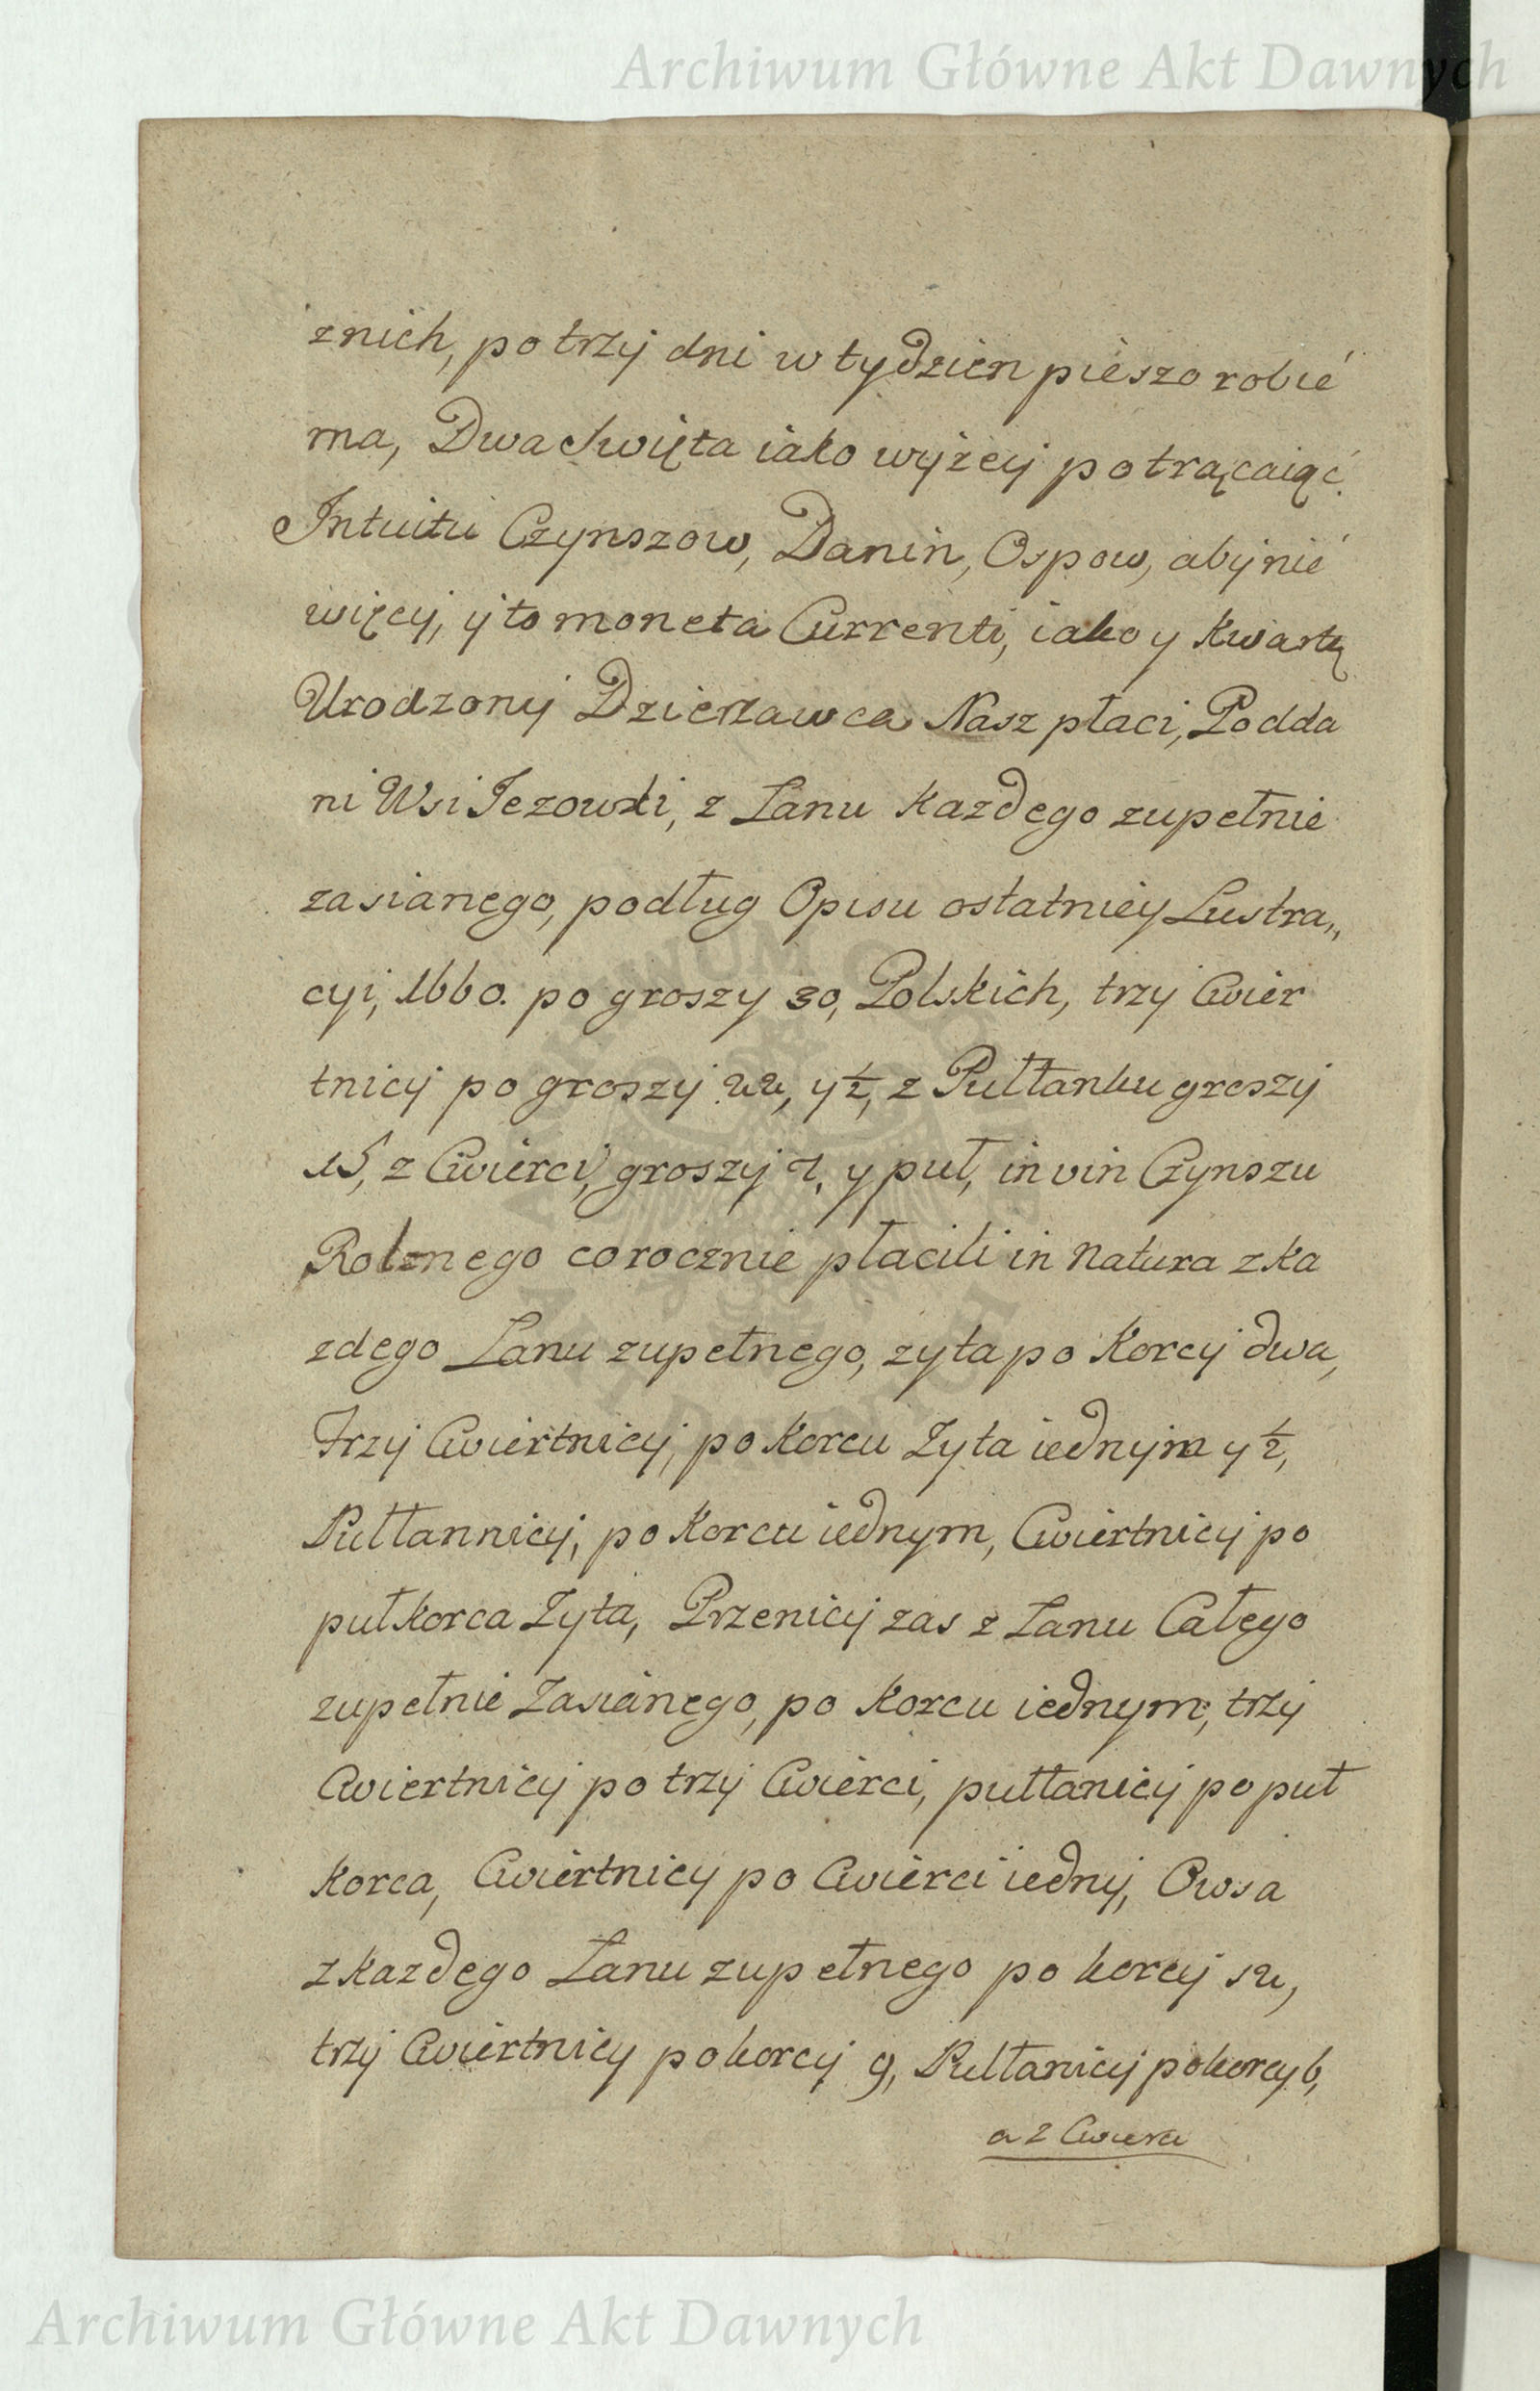 Archiwum Główne Akt Dawnych
znich, po trzy dni w tydzien pieszo robić
ma, Dwa Swięta iako wyżey potrącaiąc.
Intuitu Czynszow, Danin, Ospow, aby nie
więcy, y to moneta Currenti, iako y kwartę
Urodzony Dzierżawca Nasz płaci, Podda
ni Wsi Jezowki, z Łanu każdego zupełnie
zasianego, podług Opisu ostatniey Lustra„
cyi, 1660. po groszy 30, Polskich, trzy Cwier
tnicy po groszy 22, y ½, z Pułłanku groszy
15, z Cwierci, groszy 7, y puł, in vin Czynszu
Rolznego corocznie płacili in Natura z ka
zdego Łanu zupełnego, zyta po Korcy dwa,
Trzy Cwiertnicy, po Korcu Zyta iednym y ½,
Pułłannicy, po Korcu iednym, Cwiertnicy po
puł Korca Zyta, Przenicy zas z Łanu Całego
zupełnie Zasianego, po Korcu iednym, trzy
Cwiertnicy po trzy Cwierci, pułłanicy po puł
Korca, Cwiertnicy po Cwierci iedny, Owsa
z Każdego Łanu zupełnego po korcy 12,
trzy Cwiertnicy po korcy 9, Pułłanicy po korcy 6,
a z Cwierci
Archiwum Główne Akt Dawnych